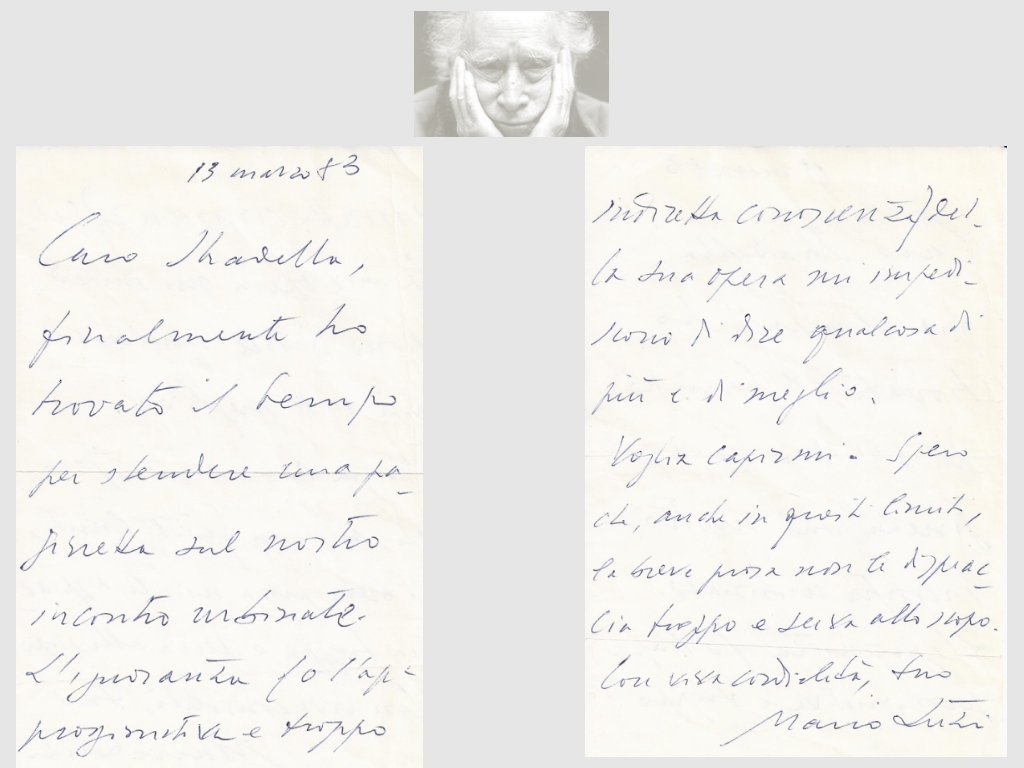 13 marzo 83
Caro Stradella,
finalmente ho
trovato il tempo
per stendere una pa-
ginetta sul nostro
incontro urbinate.
L'ignoranza (o l'ap-
prossimativa e troppo
indiretta conoscenza) del-
la sua opera mi impedi-
scono di dire qualcosa di
più e di meglio.
Voglia capirmi. Spero
che, anche in questi limiti,
la breve prosa non le dispiac-
cia troppo e serva allo scopo.
Con viva cordialità, suo
Mario Luzi